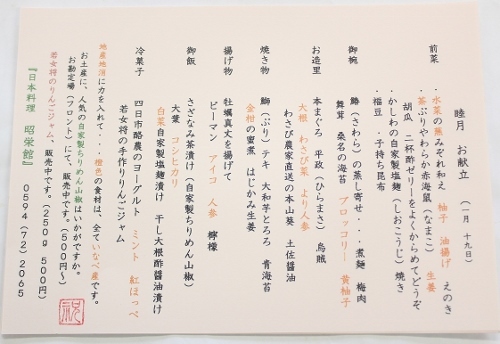 睦月　お献立　（一月　十九日）
前菜　・水菜の蕪みぞれ和え　柚子　油揚げ　えのき
・茶ぶりやわらか赤海鼠（なまこ）　生姜
胡瓜　二杯酢ゼリーをよくからめてどうぞ
・かしわの自家製塩麹（しおこうじ）焼き
・福豆　・子持ち昆布
御椀　鰆（さわら）の蒸し寄せ・・・煮麺　梅肉
舞茸　桑名の海苔　ブロッコリー　黄柚子
お造里　本まぐろ　平政（ひらまさ）　烏賊
大根　わさび菜　より人参
わさび農家直送の本山葵　土佐醤油
焼き物　鰤（ぶり）テキ　大和芋とろろ　青海苔
金柑の蜜煮　はじかみ生姜
揚げ物　牡蠣真丈を揚げて
ピーマン　アイコ　人参　檸檬
御飯　さざなみ茶漬け（自家製ちりめん山椒）
大葉　コシヒカリ
白菜自家製塩麹漬け　干し大根酢醤油漬け
冷菓子　四日市酪農のヨーグルト　ミント　紅ほっぺ
若女将の手作りりんごジャム
地産地消に力を入れて・・・橙色の食材は、全ていなべ産です。
お土産に、人気の自家製ちりめん山椒はいかがですか。
お勘定場（フロント）にて、販売中です。（500円～）
若女将のりんごジャム、販売中です。（250g　500円）
『日本料理　昭栄館』　0594（72）2065
祝